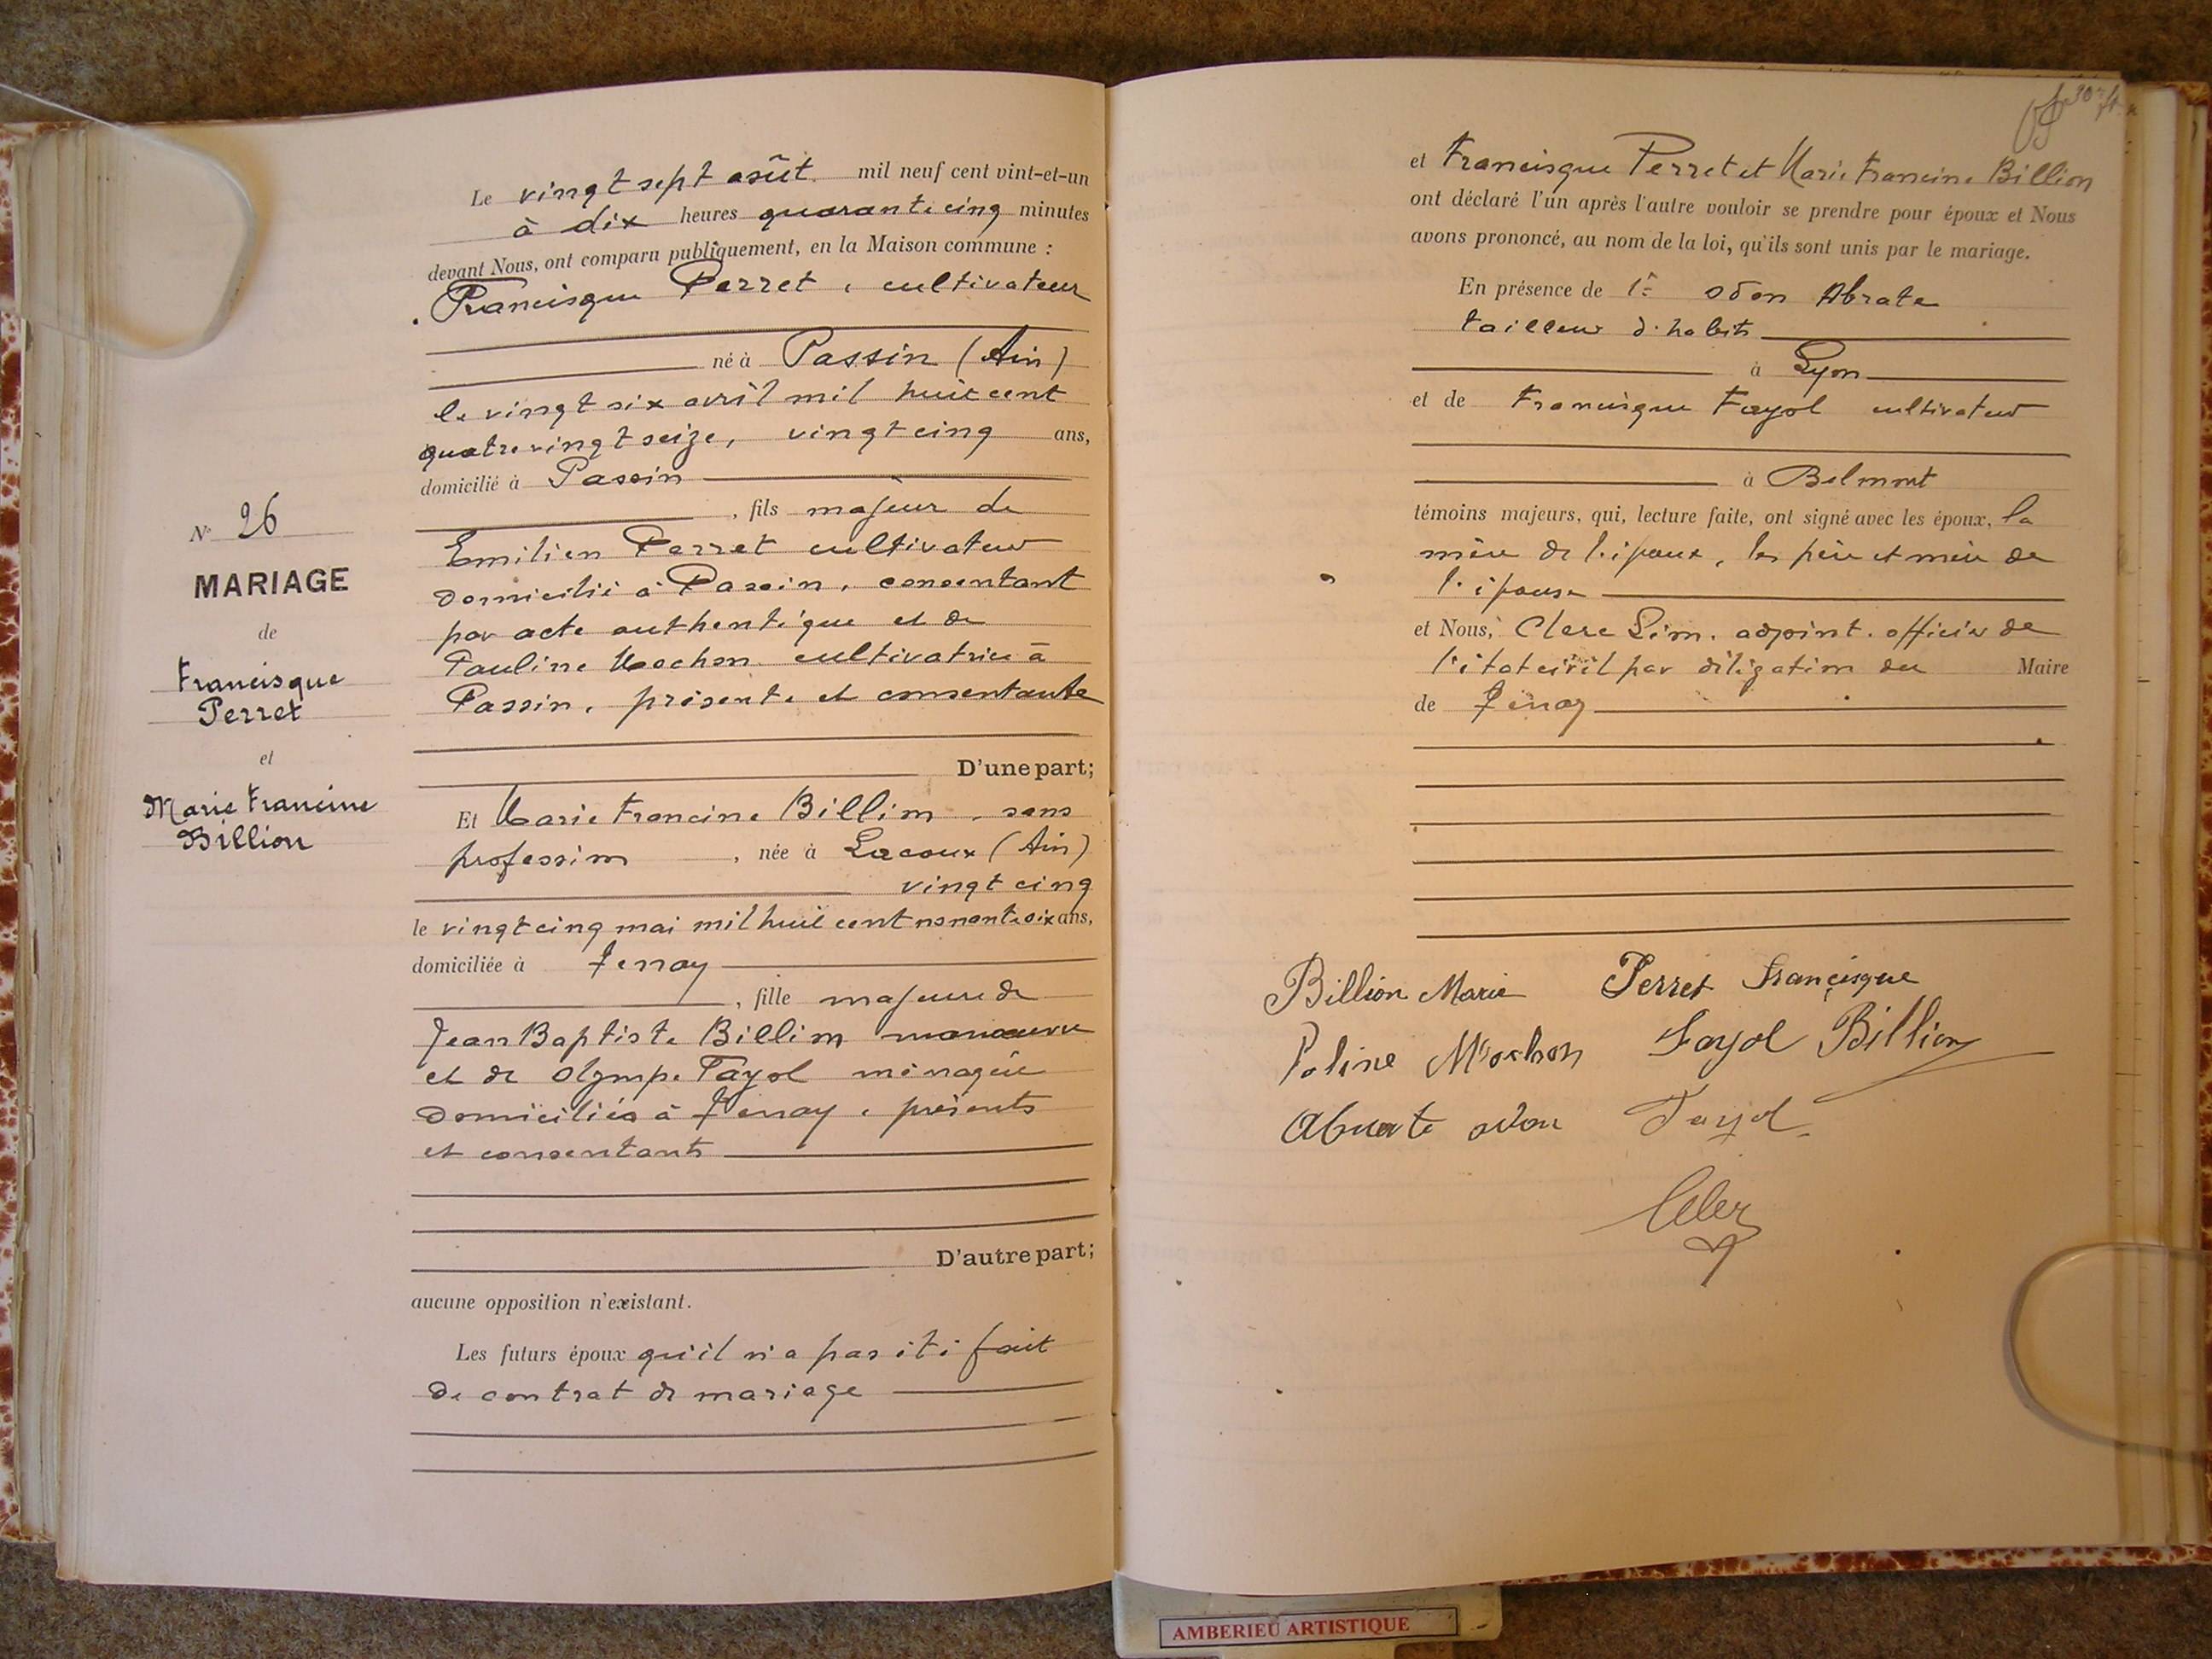 N° 26
MARIAGE
de
Francisque
Perret
et
Marie Francine
Billion
Le vingt sept août mil neuf cent vint-et-un
à dix heures quarante cinq minutes
devant Nous, ont comparu publiquement, en la Maison commune :
Francisque Perret, cultivateur
né à Passin (Ain)
le vingt six avril mil huit cent
quatre vingt seize, vingt cinq ans,
domicilié à Passin
, fils majeur de
Emilien Perret cultivateur
domicilié à Passin, consentant
par acte authentique et de
Pauline Mochon cultivatrice à
Passin, présente et consentante
D'une part;
Et Marie Francine Billion, sans
profession, née à Lacoux (Ain)
vingt cinq
le vingt cinq mai mil huit cent nonante six ans,
domiciliée à Tenay
, fille majeure de
Jean Baptiste Billion manœuvre
et de Olympe Fayol ménagère
domiciliés à Tenay, présents
et consentants
D'autre part;
aucune opposition n'existant.
Les futurs époux qu'il n'a pas été fait
de contrat de mariage
et Francisque Perret et Marie Francine Billion
ont déclaré l'un après l'autre vouloir se prendre pour époux et Nous
avons prononcé, au nom de la loi, qu'ils sont unis par le mariage.
En présence de 1° Odon Abrate
tailleur d'habits
à Lyon
et de Francisque Fayol cultivateur
à Belmont
témoins majeurs, qui, lecture faite, ont signé avec les époux, la
mère de l'époux, les père et mère de
l'épouse
et Nous, Clerc Léon, adjoint, officier de
l'état civil par délégation du Maire
de Tenay
Billion Marie Perret françisque
Poline Mochon Fayol Billion
Abrate odon Fayol
Clerc
AMBERIEU ARTISTIQUE